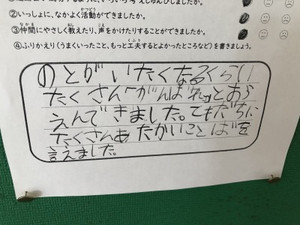 ②いっしょに、なかよく活動ができましたか。
③仲間にやさしく教えたり、声をかけたりすることができましたか。
④ふりかえり(うまくいったこと、もっと工夫するとよかったところなど)を書きましょう。
のとがいたくなるくらい
たくさん「がんばれ」とおう
えんできました。ともだちに
たくさんあたたかいことばを
言えました。